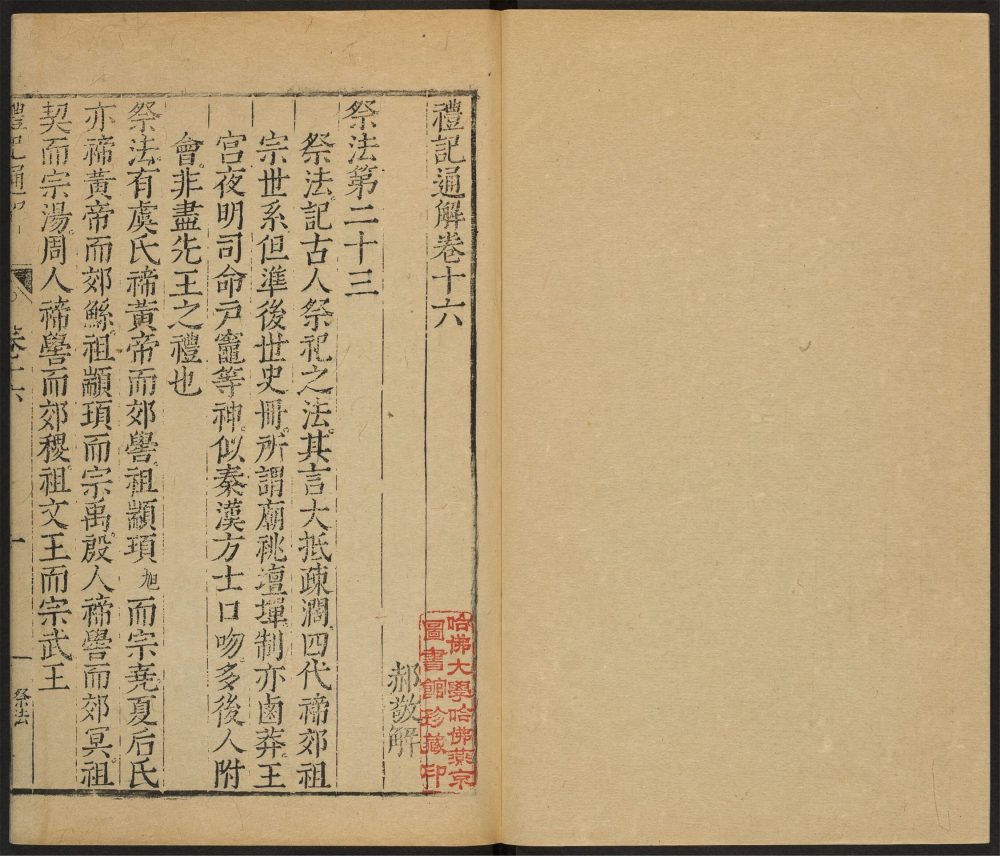 禮記通解卷十六
郝敬解
祭法第二十三
祭法。記古人祭祀之法。其言大抵疎濶。四代禘郊祖
宗世系。但準後世史冊。所謂廟祧壇墠。制亦鹵莽。王
宫夜明司命戸竈等神。似秦漢方士口吻。多後人附
會。非盡先王之禮也
祭法。有虞氏禘黃帝而郊嚳。祖顓頊旭而宗堯。夏后氏
亦禘黃帝而郊鯀。祖顓頊而宗禹。殷人禘嚳而郊冥。祖
契而宗湯。周人禘嚳而郊稷。祖文王而宗武王
禮記通解
卷十六
一
祭法
哈佛大學哈佛燕京
圖書館珍藏印